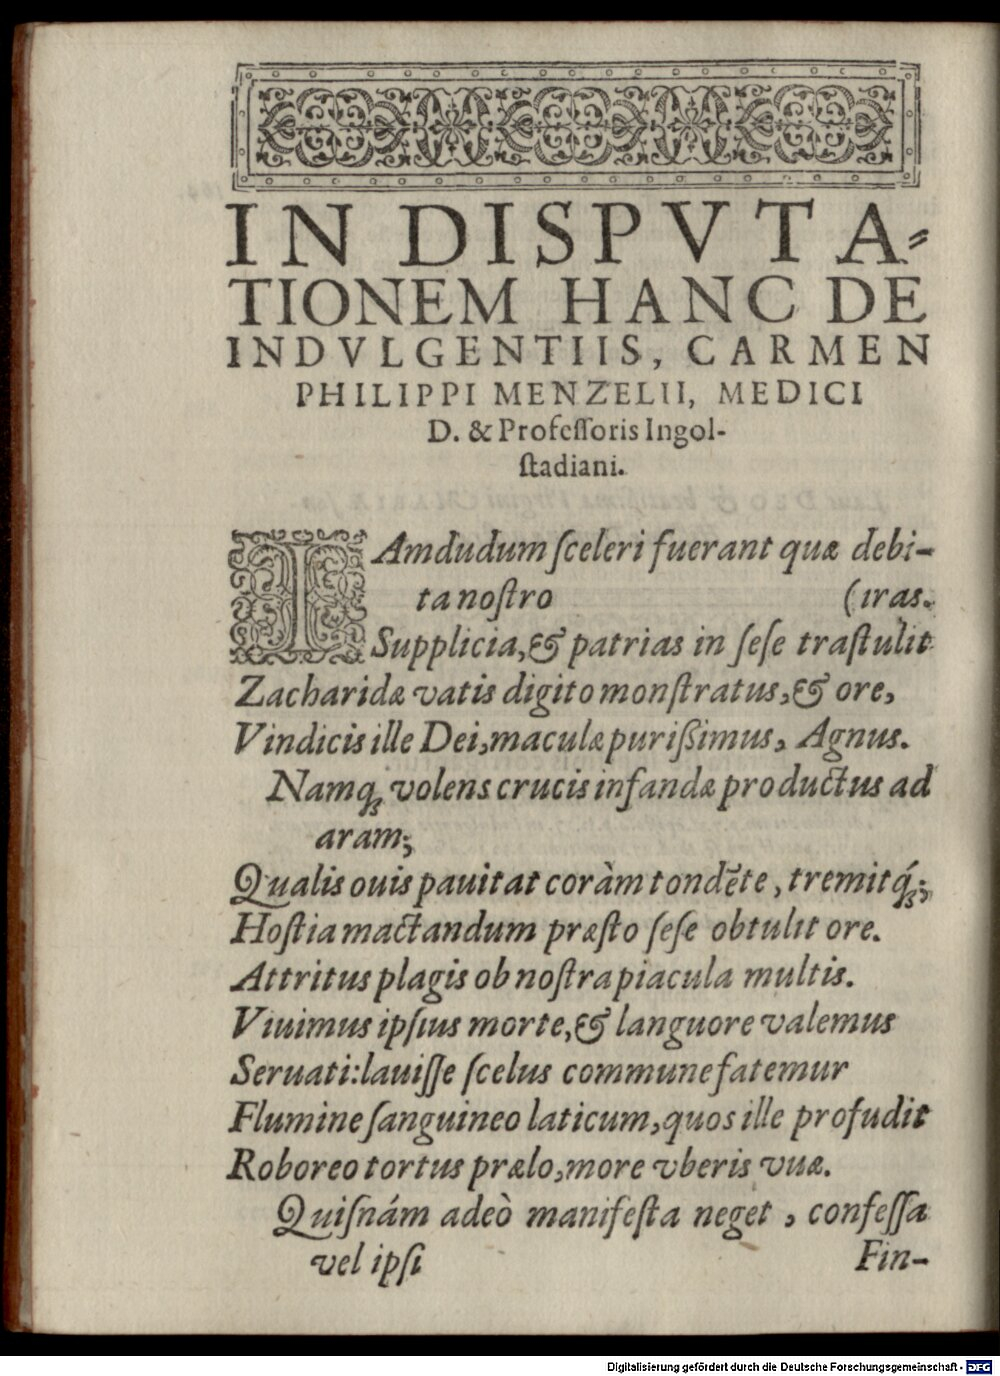 IN DISPVTA-
TIONEM HANC DE
INDVLGENTIIS, CARMEN
PHILIPPI MENZELII, MEDICI
D. & Professoris Ingol-
stadiani.
IAmdudum sceleri fuerant quæ debi-
ta nostro (iras.
Supplicia, & patrias in sese trastulit
Zacharidæ vatis digito monstratus, & ore,
Vindicis ille Dei, maculæ purißimus, Agnus.
Namq; volens crucis infandæ productus ad
aram;
Qualis ouis pauitat coràm tondẽte, tremitq́;;
Hostia mactandum præsto sese obtulit ore.
Attritus plagis ob nostra piacula multis.
Viuimus ipsius morte, & languore valemus
Seruati: lauisse scelus commune fatemur
Flumine sanguineo laticum, quos ille profudit
Roboreo tortus prælo, more vberis vuæ.
Quisnám adeò manifesta neget, confessa
vel ipsi Fin-
Digitalisierung gefördert durch die Deutsche Forschungsgemeinschaft - DFG